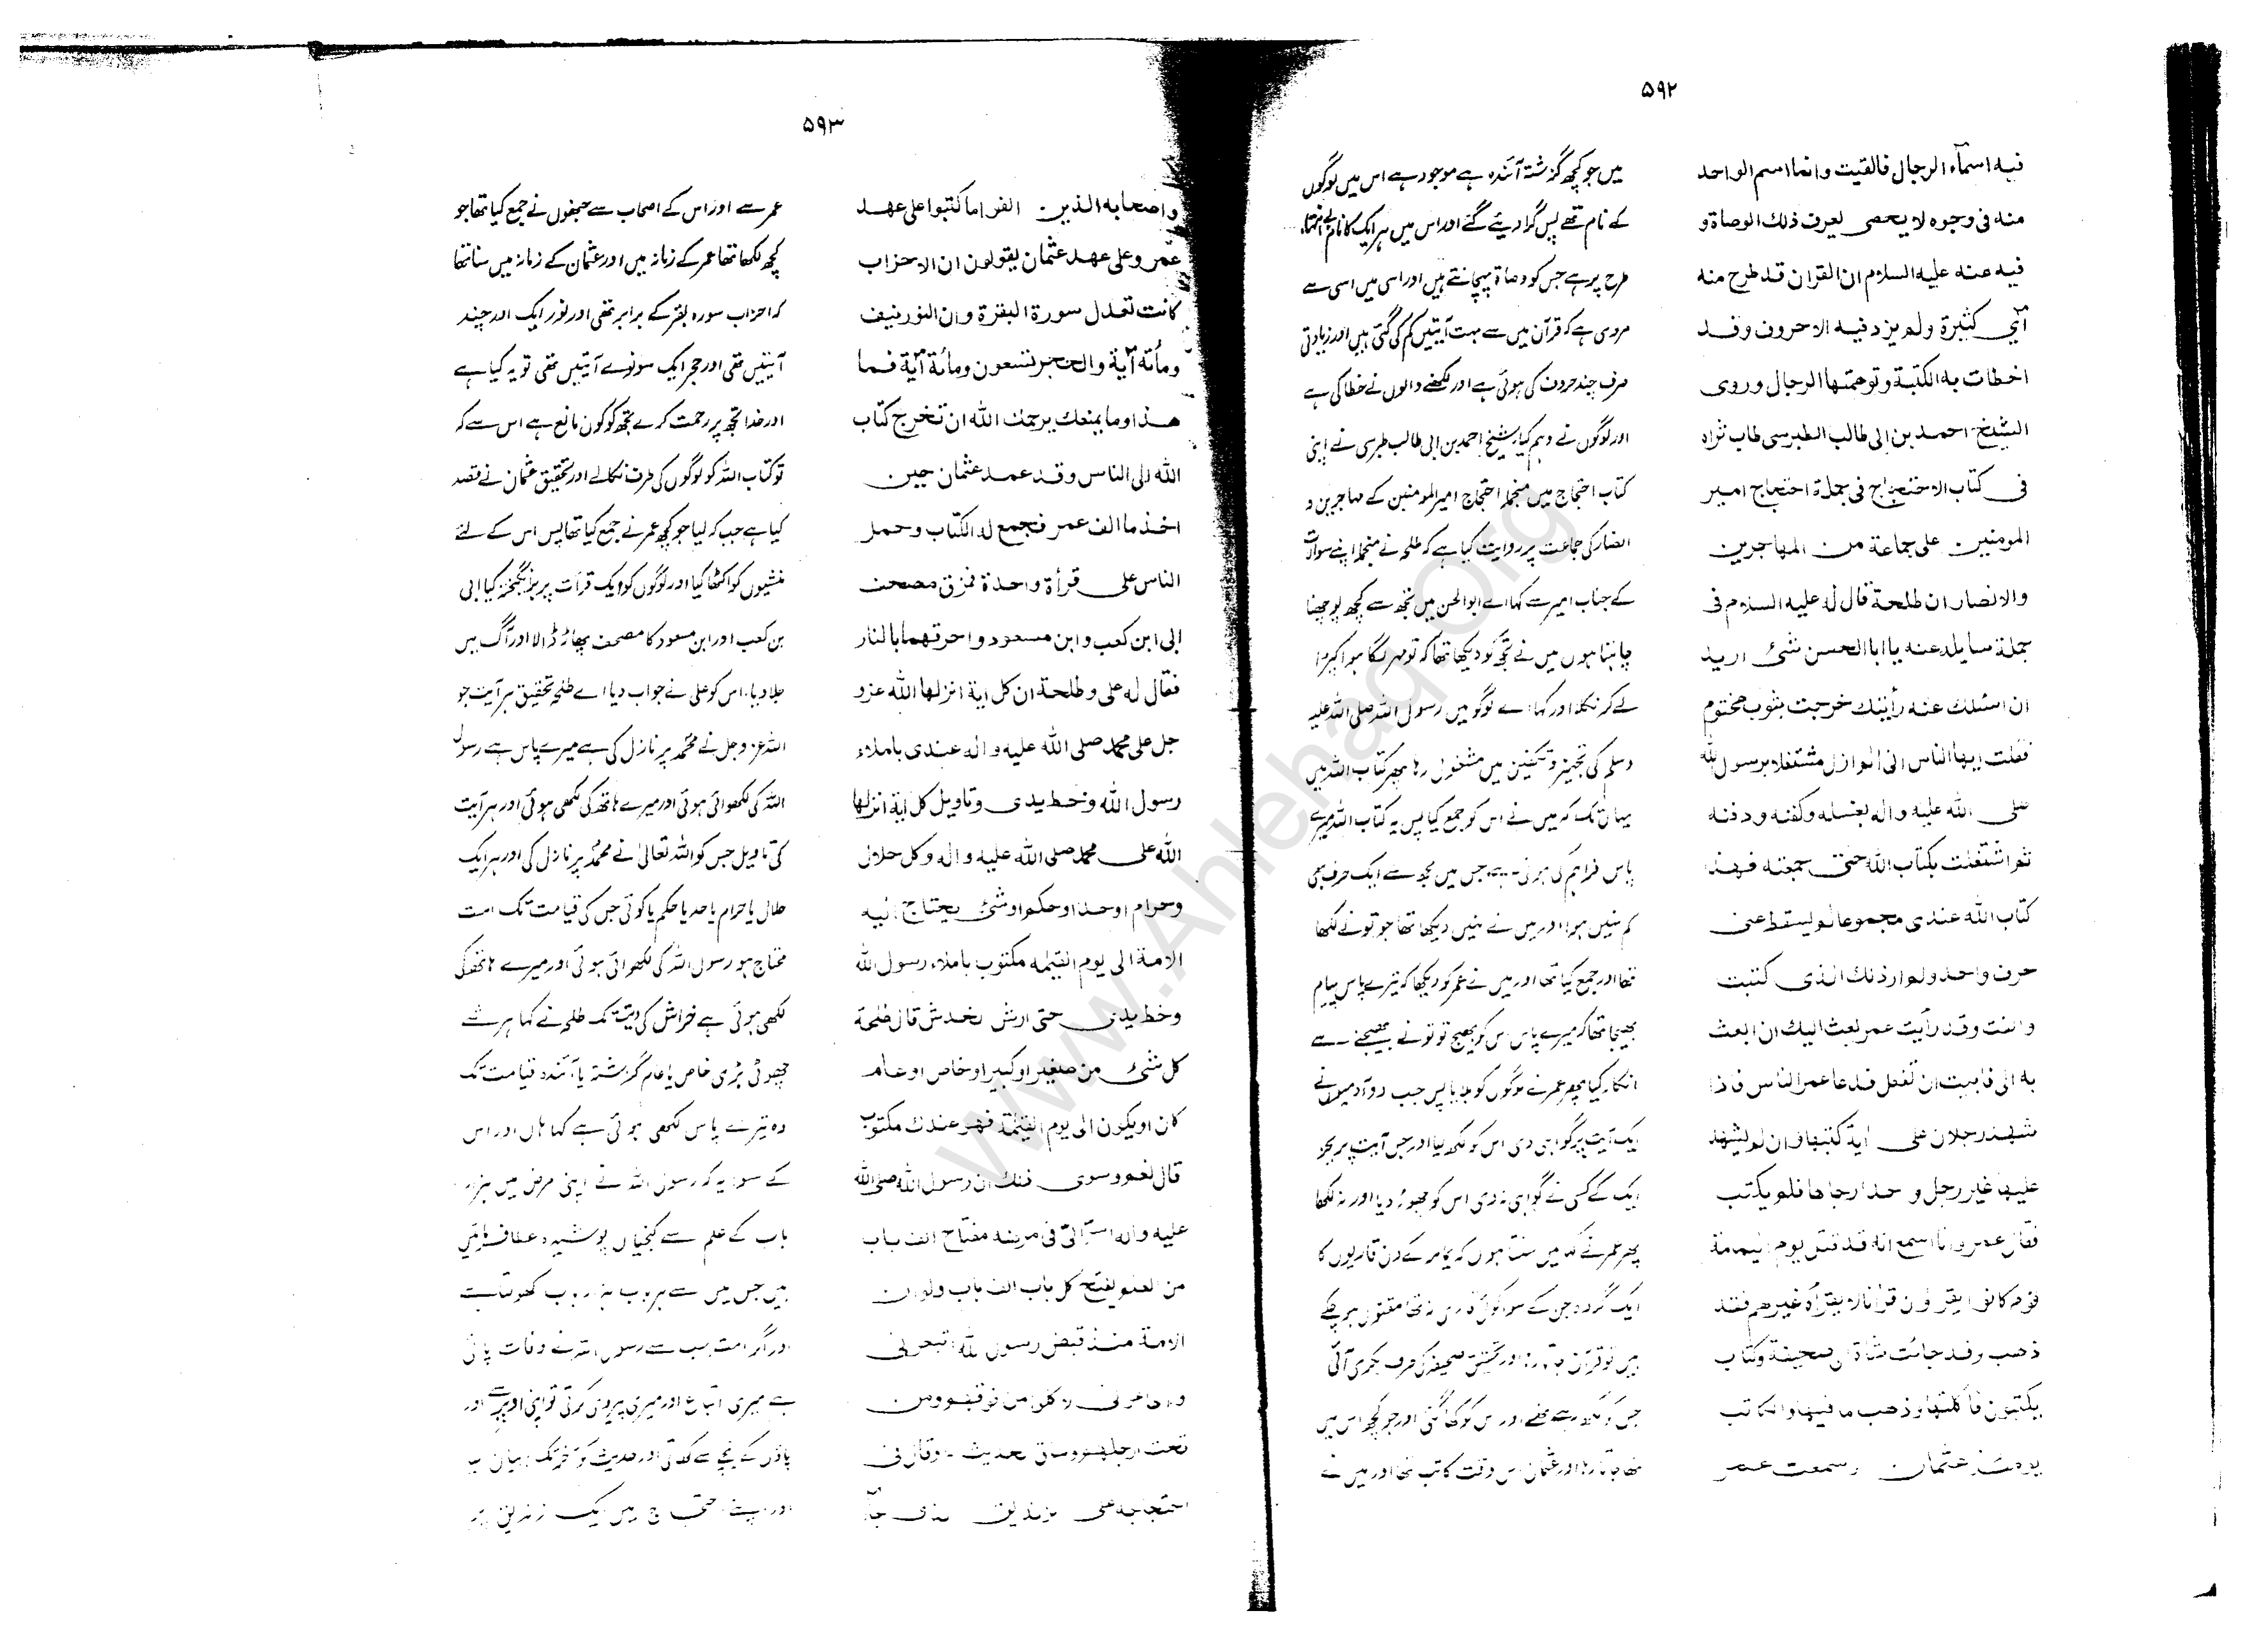 ۵۹۲
فیه اسمآء الرجال فالقیت وانما اسم الواحد
منه فی وجوه لا یحصی یعرف ذلك الوصاة و
فیه عنه علیه السلام ان القران قد طرح منه
آی کثیرة ولم یزد فیه الا حرون وقد
اخطات به الکتبة وتوهمتها الرجال وروی
الشیخ احمد بن ابی طالب الطبرسی طاب ثراه
فی کتاب الاحتجاج فی جملة احتجاج امیر
المومنین علی جماعة من المهاجرین
والانصار ان طلحة قال له علیه السلام فی
جملة سایله عنه یا ابا الحسن شیٔ ارید
ان اسئلك عنه رأیتك خرجت بثوب مختوم
فقلت ایها الناس انی لم ازل مشتغلا برسول الله
صلی الله علیه واله بغسله وکفنه ودفنه
ثم اشتغلت بکتاب الله حتی جمعته فهذا
کتاب الله عندی مجموعا لم یسقط عنی
حرف واحد ولم ار ذلك الذی کتبت
والفت وقد رأیت عمر بعث الیك ان ابعث
به الی فابیت ان تفعل فدعا عمر الناس فاذا
شهد رجلان علی ایة کتبها وان لم یشهد
علیها غیر رجل واحد ارجاها فلم یکتب
فقال عمر وانا اسمع انه قد قتل یوم الیمامة
قوم کانوا یقرؤن قرانا لا یقرأه غیرهم فقد
ذهب وقد جائت شاة الی صحیفة وکتاب
یکتبون فاکلتها وذهب ما فیها والکاتب
یومئذ عثمان وسمعت عمر
میں جو کچھ گزشتہ آئندہ ہے موجود ہے اس میں لوگوں
کے نام تھے پس گرا دیئے گئے اور اس میں ہر ایک کا نام بے انتہاء
طرح پر ہے جس کو وصاة پہچانتے ہیں اور اسی میں اسی سے
مروی ہے کہ قرآن میں سے بہت آیتیں کم کی گئی ہیں اور زیادتی
صرف چند حروف کی ہوئی ہے اور لکھنے والوں نے خطا کی ہے
اور لوگوں نے وہم کیا۔ شیخ احمد بن ابی طالب طبرسی نے اپنی
کتاب احتجاج میں منجملہ احتجاج امیر المومنین کے مہاجرین و
انصار کی جماعت پر روایت کیا ہے کہ طلحہ نے منجملہ اپنے سوالات
کے جناب امیر سے کہا اے ابوالحسن میں تجھ سے کچھ پوچھنا
چاہتا ہوں میں نے تجھ کو دیکھا تھا کہ تو مہر لگا ہوا کپڑا
لے کر نکلا اور کہا اے لوگو میں رسول اللہ صلی اللہ علیہ
وسلم کی تجہیز و تکفین میں مشغول رہا پھر کتاب اللہ میں
یہاں تک کہ میں نے اس کو جمع کیا پس یہ کتاب اللہ میرے
پاس فراہم کی ہوئی ہے جس میں مجھ سے ایک حرف بھی
کم نہیں ہوا اور میں نے نہیں دیکھا تھا جو تو نے لکھا
تھا اور جمع کیا تھا اور میں نے عمر کو دیکھا کہ تیرے پاس پیام
بھیجا تھا کہ میرے پاس اس کو بھیج تو تو نے بھیجنے سے
انکار کیا پھر عمر نے لوگوں کو بلایا پس جب دو آدمیوں نے
ایک آیت پر گواہی دی اس کو لکھ لیا اور جس آیت پر بجز
ایک کے کسی نے گواہی نہ دی اس کو چھوڑ دیا اور نہ لکھا
پھر عمر نے کہا میں سنتا ہوں کہ یمامہ کے دن قاریوں کا
ایک گروہ جن کے سوا کوئی قاری نہ تھا مقتول ہو چکے
ہیں تو قرآن جاتا رہا اور تحقیق صحیفہ کی طرف بکری آئی
جس کو لکھ رہے تھے اور اس کو کھا گئی اور جو کچھ اس میں
تھا جاتا رہا اور عثمان اس وقت کاتب تھا اور میں نے
۵۹۳
واصحابه الذین الفوا ما کتبوا علی عهد
عمر وعلی عهد عثمان یقولون ان الاحزاب
کانت تعدل سورة البقرة وان النور نیف
ومأتة آیة والحجر تسعون ومأئة آیة فما
هذا وما یمنعك یرحمك الله ان تخرج کتاب
الله الی الناس وقد عمد عثمان حین
اخذ ما الف عمر فجمع له الکتاب وحمل
الناس علی قرأة واحدة فمزق مصحف
ابی ابن کعب وابن مسعود واحرقهما بالنار
فقال له علی و طلحة ان کل ایة انزلها الله عزو
جل علی محمد صلی الله علیه واله عندی باملاء
رسول الله وخط یدی وتاویل کل آیة انزلها
الله علی محمد صلی الله علیه واله وکل حلال
وحرام او حد او حکم او شیٔ یحتاج الیه
الامة الی یوم القیٰمه مکتوب باملاء رسول الله
وخط یدی حتی ارش الخدش قال طلحة
کل شیٔ من صغیر او کبیر او خاص او عام
کان او یکون الی یوم القیٰمة فهو عندك مکتوب
قال نعم وسوی ذلك ان رسول الله صلی الله
علیه واله اسرّ الیّ فی مرضه مفتاح الف باب
من العلم یفتح کل باب الف باب ولو ان
الامة منذ قبض رسول الله اتبعونی
واطاعونی لاکلوا من فوقهم ومن
تحت ارجلهم وساق الحدیث ۔ وقال فی
احتجاجه علی الزندیق الذی جآء
عمر سے اور اس کے اصحاب سے جنھوں نے جمع کیا تھا جو
کچھ لکھا تھا عمر کے زمانہ میں اور عثمان کے زمانہ میں سنا تھا
کہ احزاب سورہ بقر کے برابر تھی اور نور ایک اور چند
آیتیں تھی اور حجر ایک سو نوے آیتیں تھی تو یہ کیا ہے
اور خدا تجھ پر رحمت کرے تجھ کو کون مانع ہے اس سے کہ
تو کتاب اللہ کو لوگوں کی طرف نکالے اور تحقیق عثمان نے قصد
کیا ہے جب کہ لیا جو کچھ عمر نے جمع کیا تھا پس اس کے لئے
منشیوں کو اکٹھا کیا اور لوگوں کو ایک قرأت پر برانگیختہ کیا ابی
بن کعب اور ابن مسعود کا مصحف پھاڑ ڈالا اور آگ میں
جلا دیا، اس کو علی نے جواب دیا اے طلحہ تحقیق ہر آیت جو
اللہ عز وجل نے محمد پر نازل کی ہے میرے پاس ہے رسول
اللہ کی لکھوائی ہوئی اور میرے ہاتھ کی لکھی ہوئی اور ہر آیت
کی تاویل جس کو اللہ تعالیٰ نے محمد پر نازل کی اور ہر ایک
حلال یا حرام یا حد یا حکم یا کوئی جس کی قیامت تک امت
محتاج ہو رسول اللہ کی لکھوائی ہوئی اور میرے ہاتھ کی
لکھی ہوئی ہے خراش کی دیت تک طلحہ نے کہا ہر شے
چھوٹی بڑی خاص یا عام گزشتہ یا آئندہ قیامت تک
وہ تیرے پاس لکھی ہوئی ہے کہا ہاں اور اس
کے سوا یہ کہ رسول اللہ نے اپنی مرض میں ہزار
باب کے علم سے کنجیاں پوشیدہ عطا فرمائی
ہیں جس میں سے ہر باب ہزار باب کھولتا ہے
اور اگر امت جب سے رسول اللہ نے وفات پائی
ہے میری اتباع اور میری پیروی کرتی تو اپنی اوپر سے اور
پاؤں کے نیچے سے کھاتی اور حدیث کو آخر تک بیان کیا
اور اپنے احتجاج میں ایک زندیق پر
www.Ahlehaq.Org